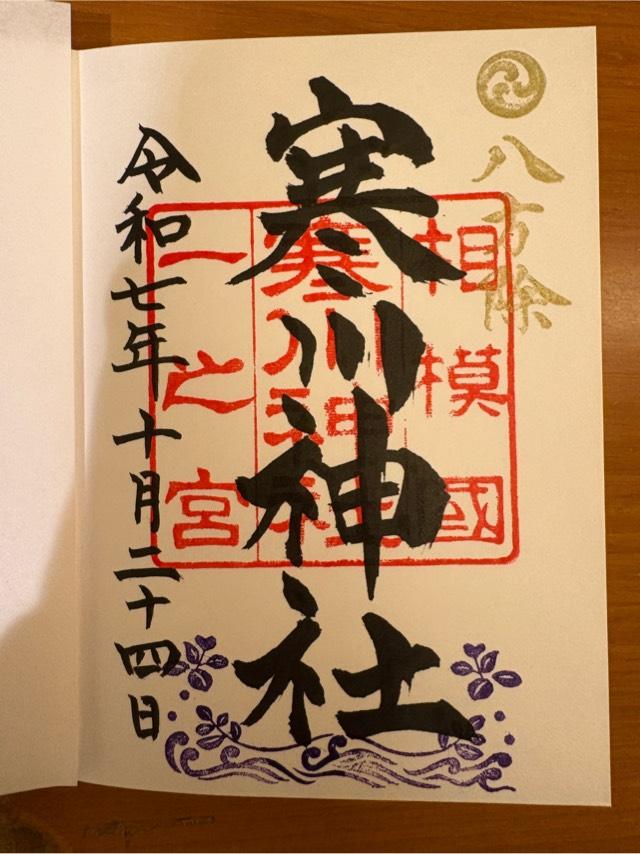 八方除
相模國
寒川神社
一之宮
寒川神社
令和七年十月二十四日